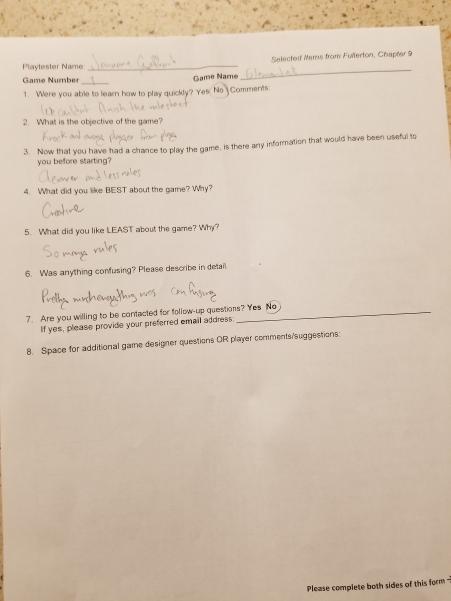 Selected Items from Fullerton, Chapter 9
Playtester Name:
Game Number 1 Game Name
1. Were you able to learn how to play quickly? Yes No Comments:
finish the rulesheet
2. What is the objective of the game?
Knock out
3. Now that you have had a chance to play the game, is there any information that would have been useful to
you before starting?
Cleaner and less rules
4. What did you like BEST about the game? Why?
Creative
5. What did you like LEAST about the game? Why?
So many rules
6. Was anything confusing? Please describe in detail.
Pretty much everything was confusing
7. Are you willing to be contacted for follow-up questions? Yes No
If yes, please provide your preferred email address:
8. Space for additional game designer questions OR player comments/suggestions:
Please complete both sides of this form